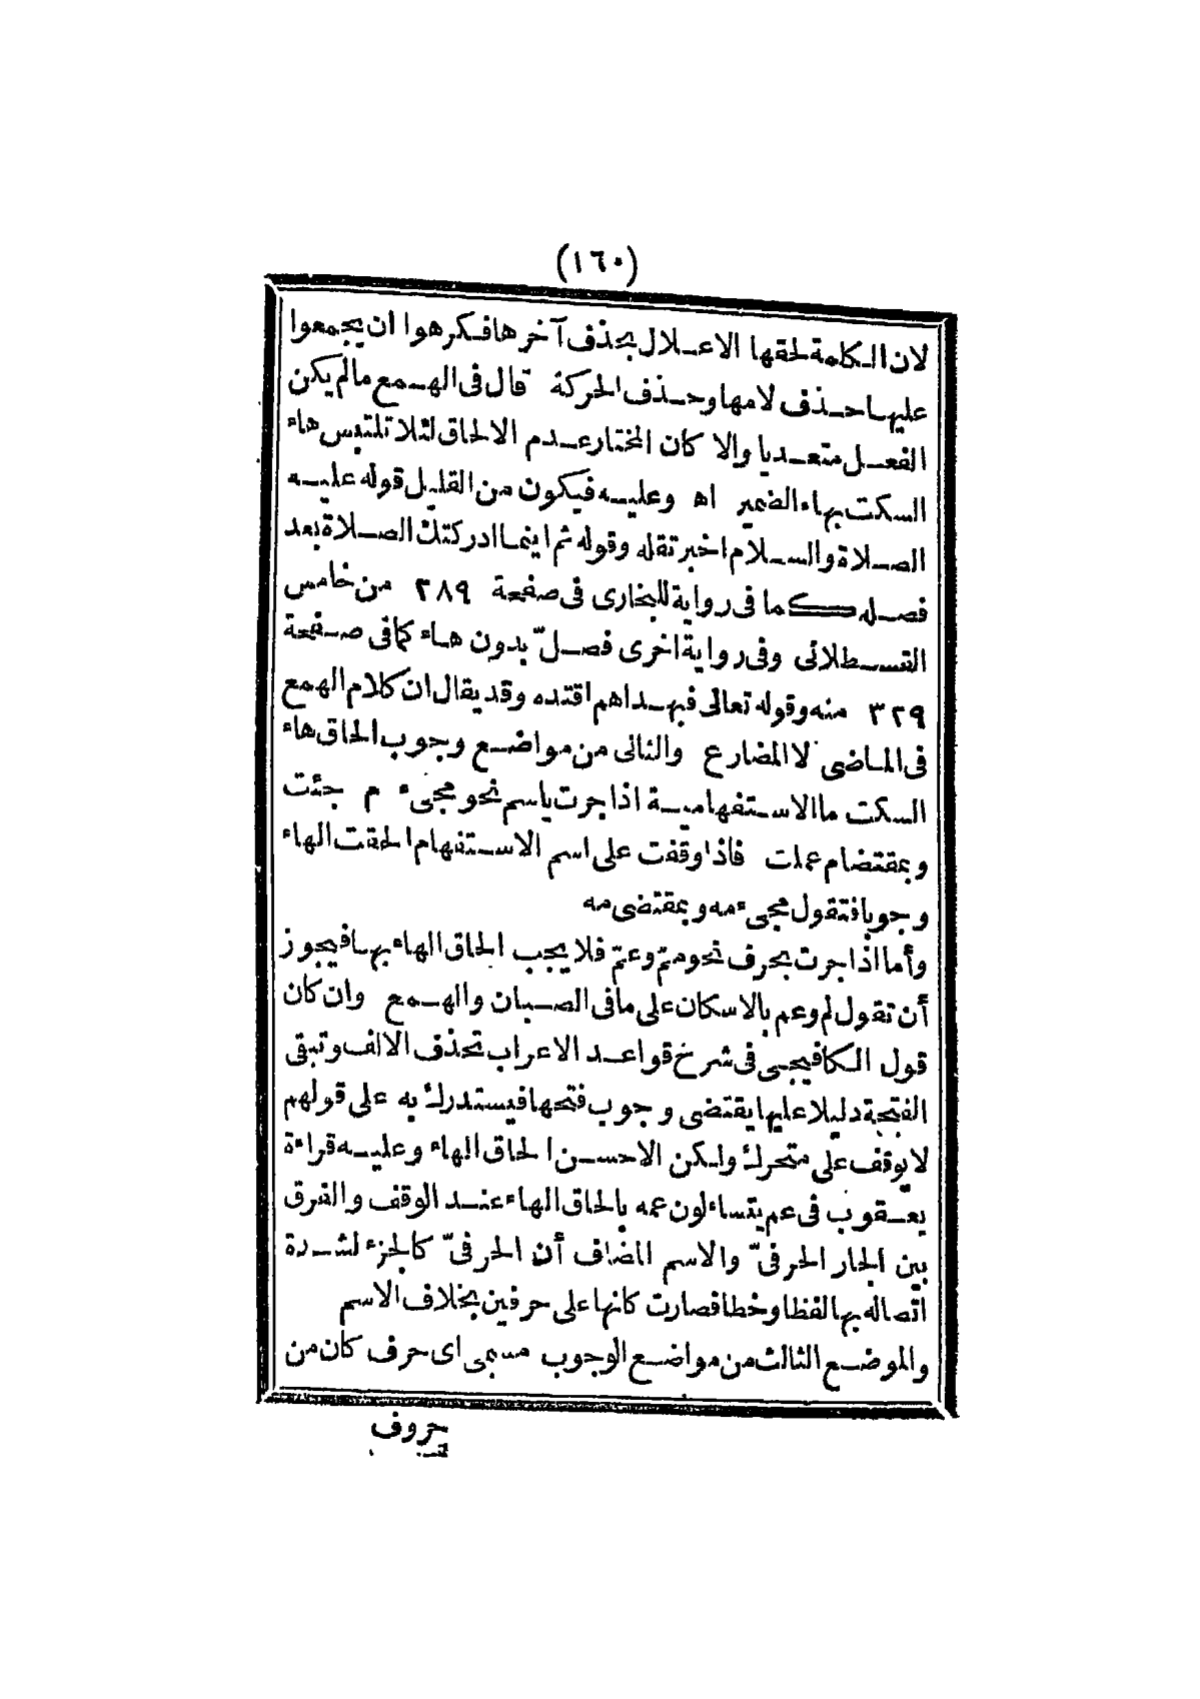 (١٦٠)
لان الكلمة لحقها الاعلال بحذف آخرها فكرهوا ان يجمعوا
عليها حذف لامها وحذف الحركة قال فى الهمع مالم يكن
الفعل متعديا والا كان المختار عدم الالحاق لئلا تلتبس هاء
السكت بهاء الضمير اه وعليه فيكون من القليل قوله عليه
الصلاة والسلام اخبر تقله وقوله ثم اينما ادركتك الصلاة بعد
فصله كما فى رواية للبخارى فى صفحة ٢٨٩ من خامس
القسطلانى وفى رواية اخرى فصلّ بدون هاء كما فى صفحة
٣٢٩ منه وقوله تعالى فبهداهم اقتده وقد يقال ان كلام الهمع
فى الماضى لا المضارع والثانى من مواضع وجوب الحاق هاء
السكت ما الاستفهامية اذا جرت باسم نحو مجىء م جئت
وبمقتضام عملت فاذا وقفت على اسم الاستفهام الحقت الهاء
وجوبا فتقول مجىء مه وبمقتضى مه
وأما اذا جرت بحرف نحو ممّ وعمّ فلا يجب الحاق الهاء بها فيجوز
أن تقول لم وعم بالاسكان على ما فى الصبان والهمع وان كان
قول الكافيجى فى شرح قواعد الاعراب تحذف الالف وتبقى
الفتحة دليلا عليها يقتضى وجوب فتحها فيستدرك به على قولهم
لا يوقف على متحرك ولكن الاحسن الحاق الهاء وعليه قراءة
يعقوب فى عم يتساءلون عمه بالحاق الهاء عند الوقف والفرق
بين الجار الحرفىّ والاسم المضاف أن الحرفىّ كالجزء لشدة
اتصاله بها لفظا وخطا فصارت كانها على حرفين بخلاف الاسم
والموضع الثالث من مواضع الوجوب مسمى اى حرف كان من
حروف